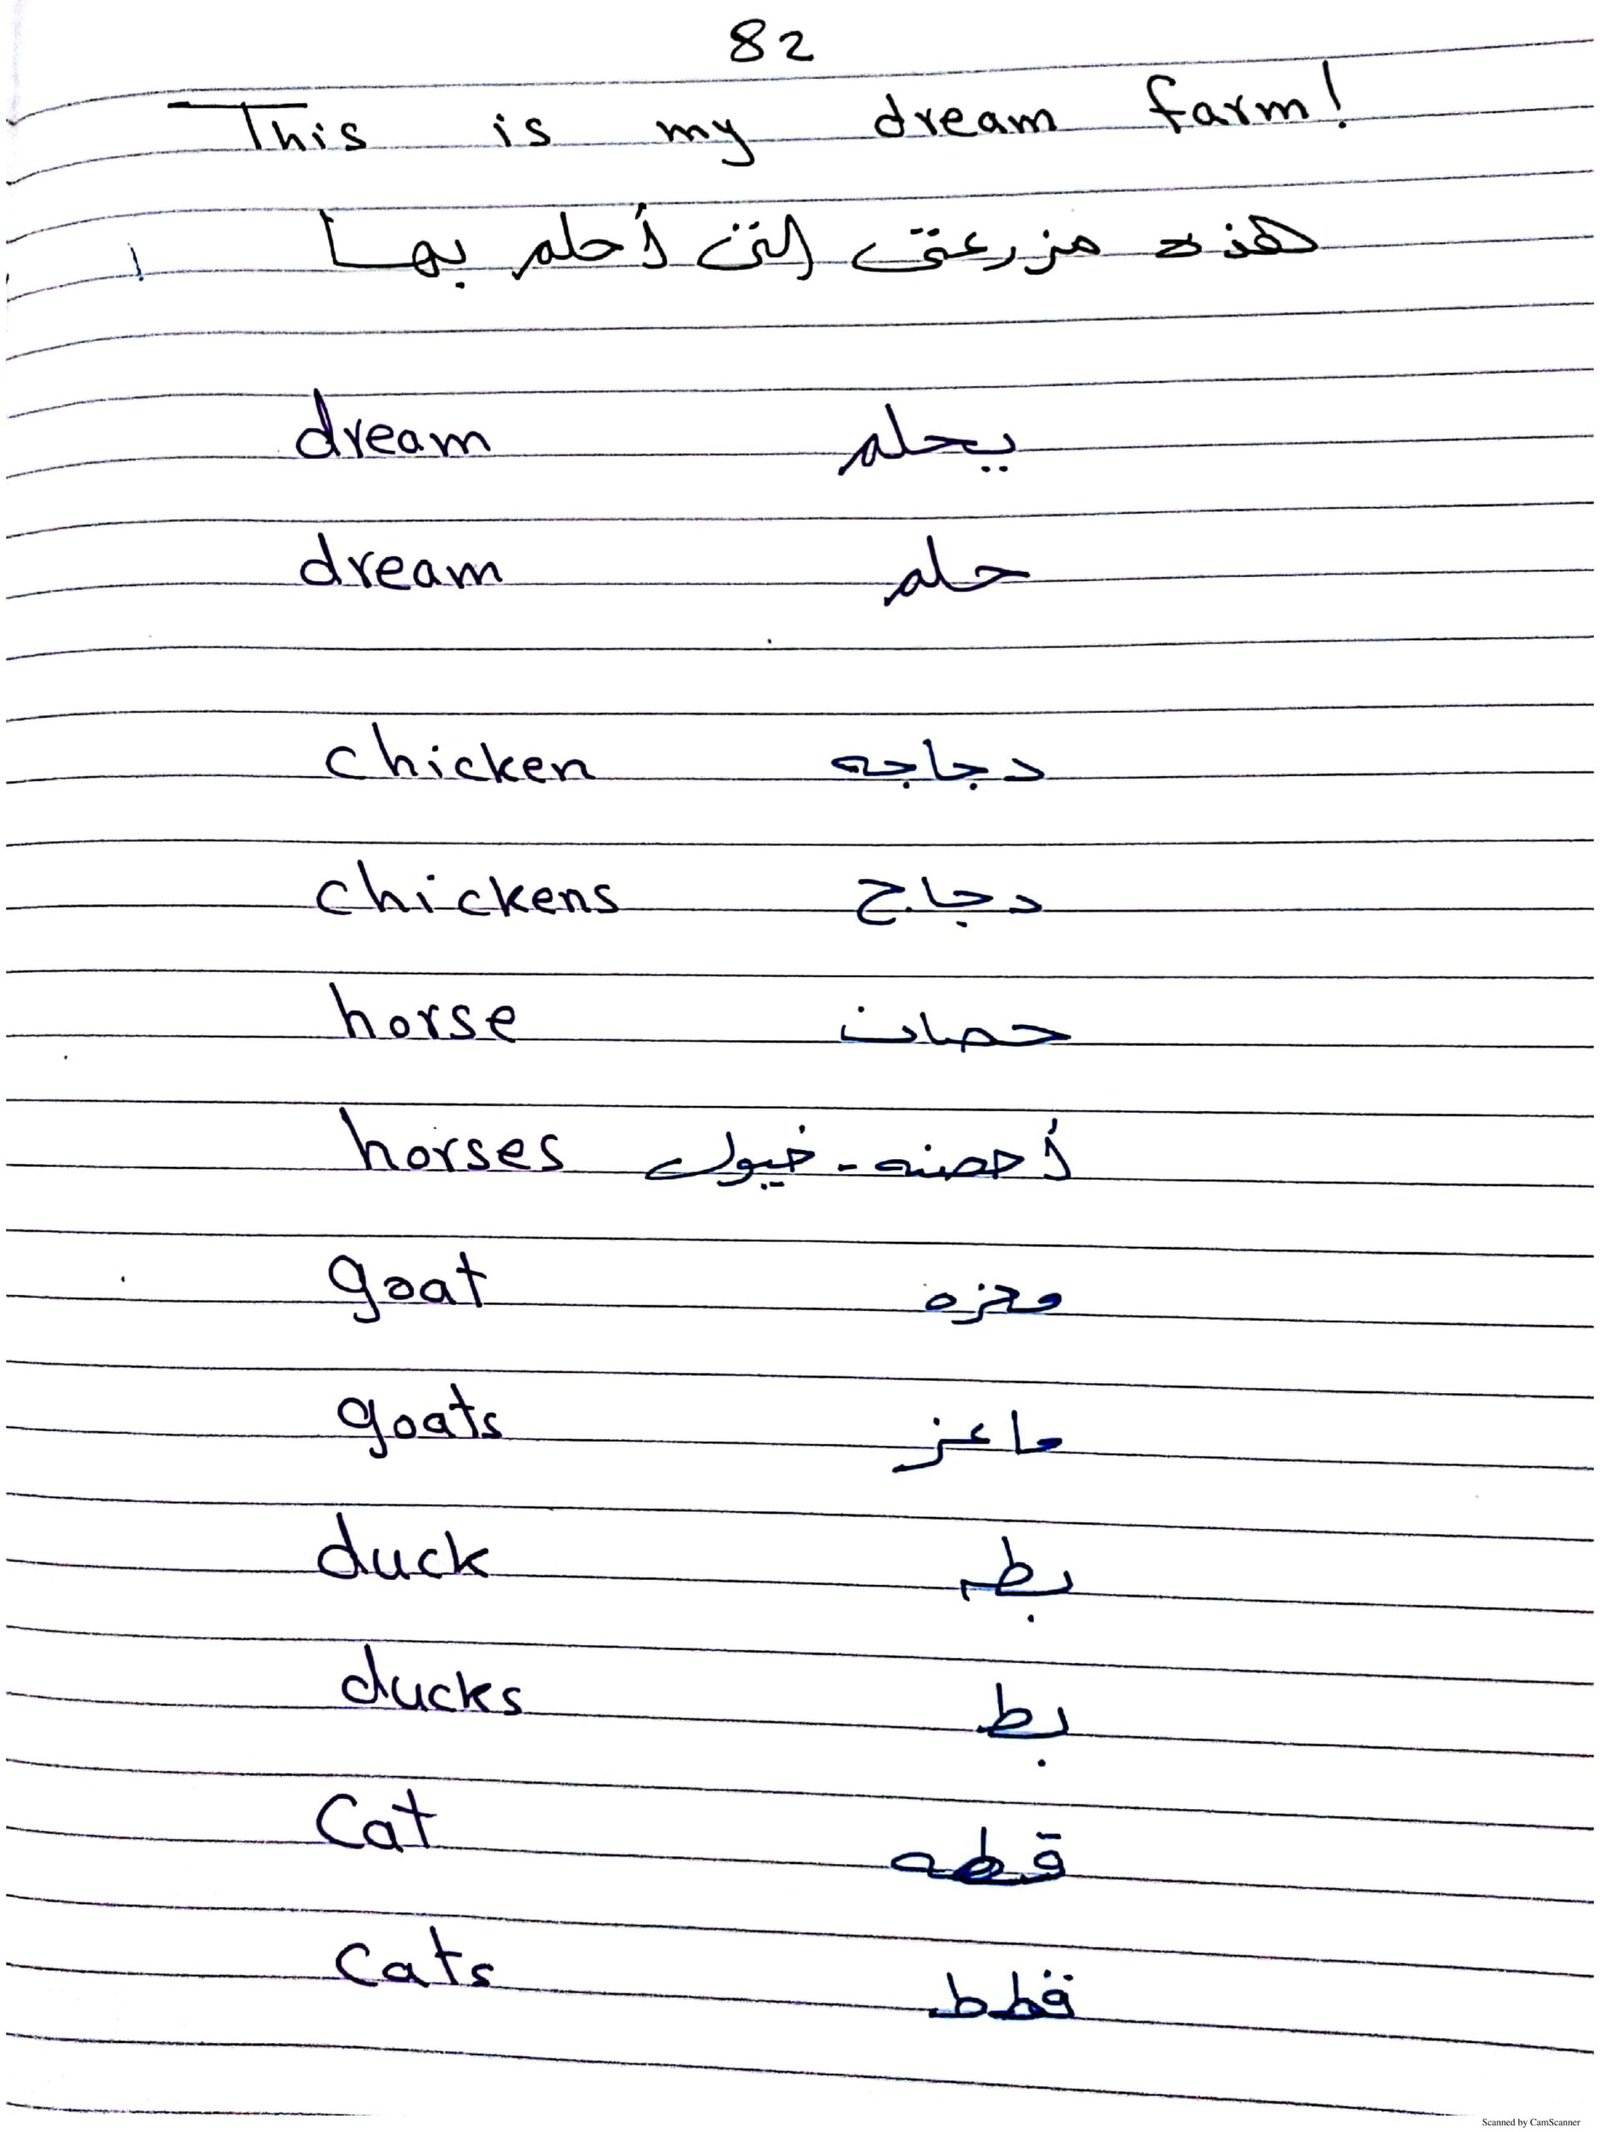 82
This is my dream farm!
هذه مزرعتى التى أحلم بها
dream يحلم
dream حلم
chicken دجاجه
chickens دجاج
horse حصان
horses أحصنه - خيول
goat معزه
goats ماعز
duck بطه
ducks بط
Cat قطه
Cats قطط
Scanned by CamScanner